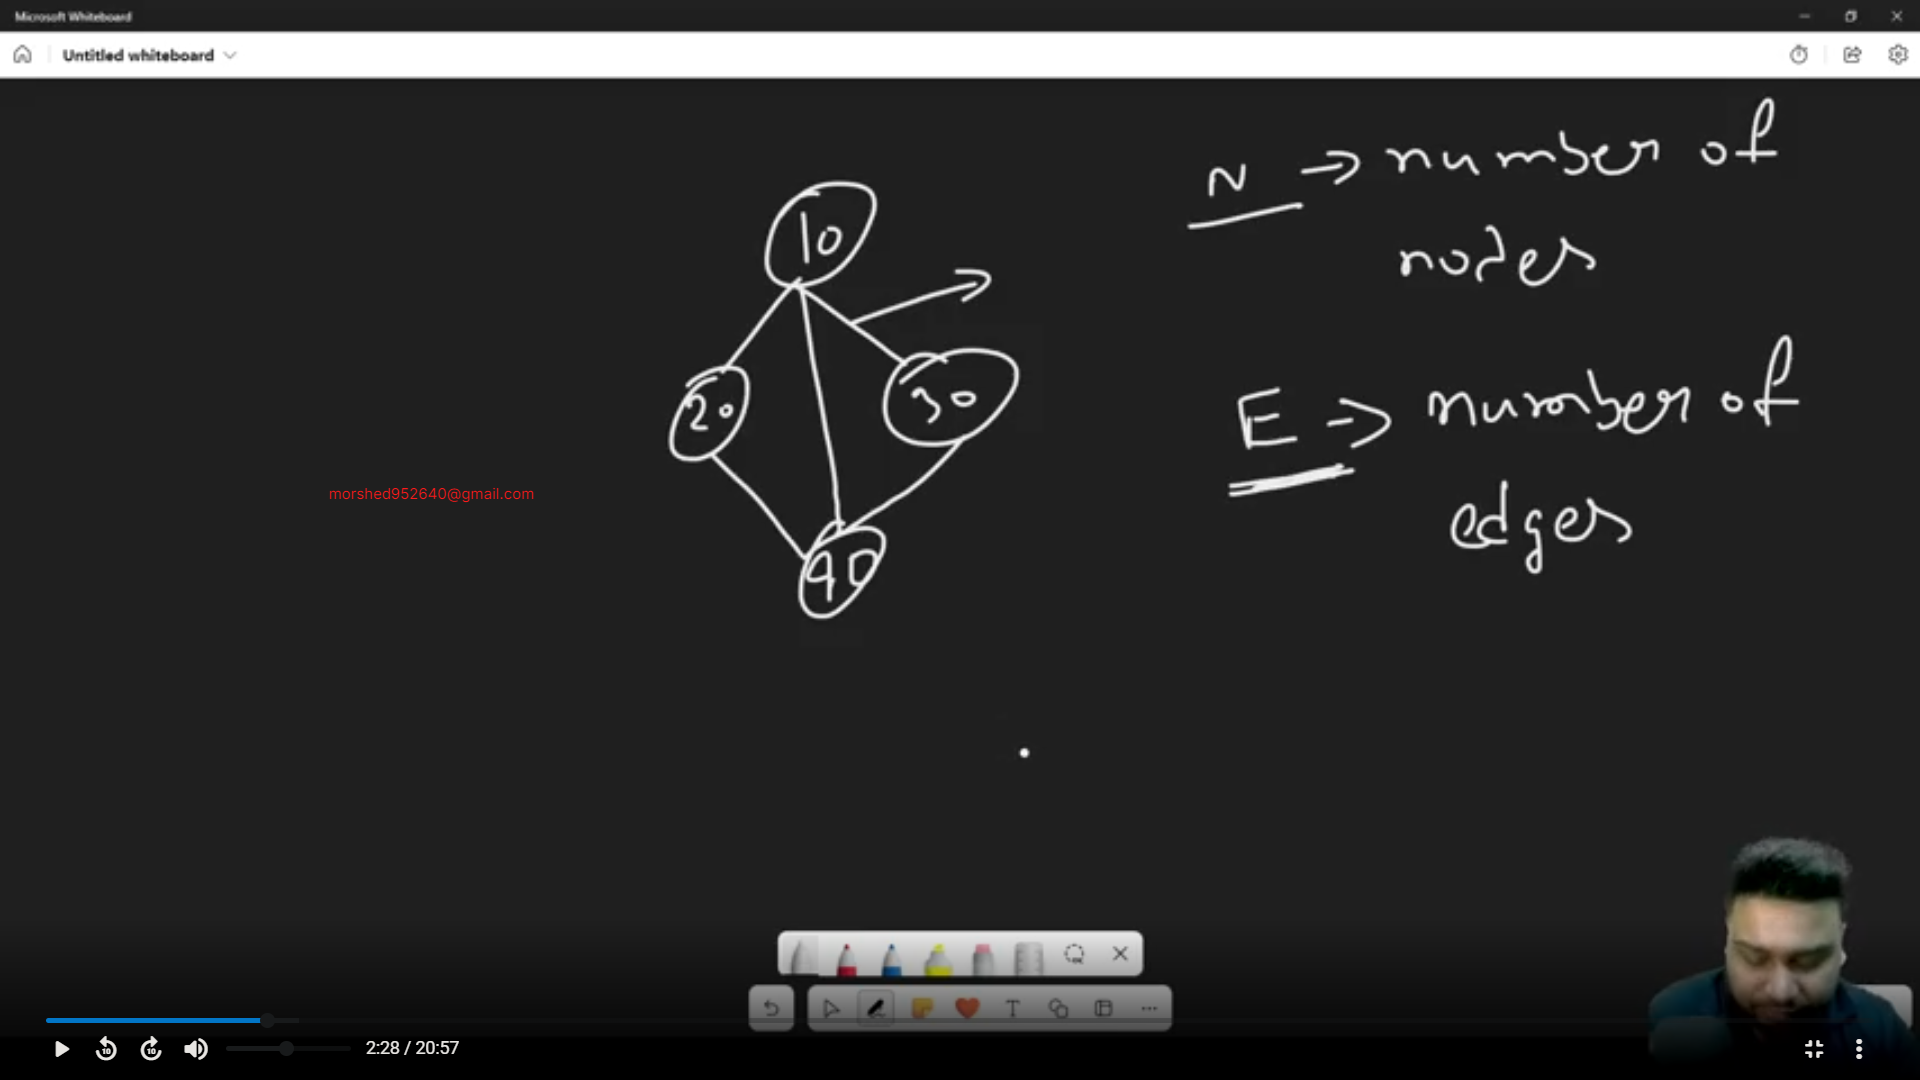 Microsoft Whiteboard
Untitled whiteboard
N → number of
nodes
10
20
30
40
E → number of
edges
morshed952640@gmail.com
10
10
T
2:28 / 20:57